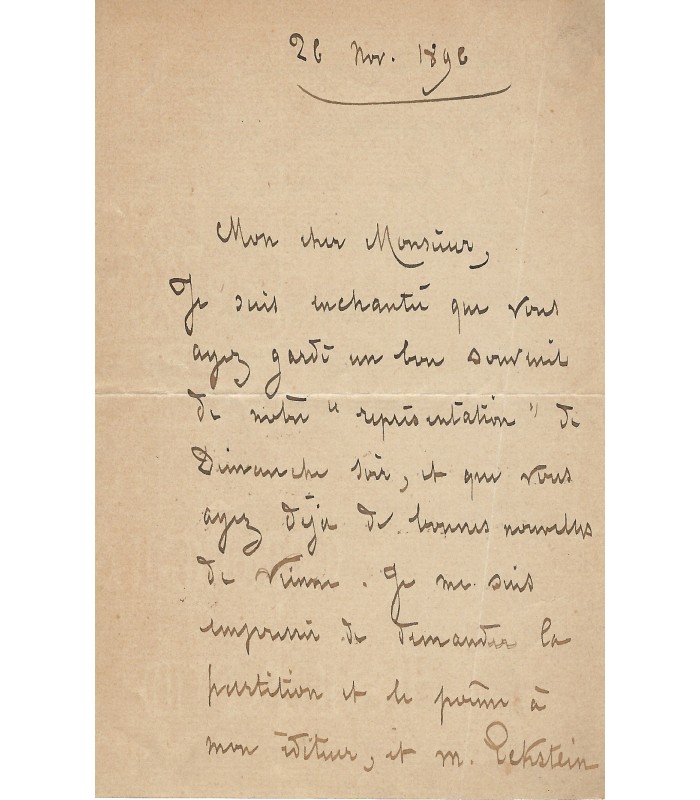 26 Nov. 1896
Mon cher Monsieur,
Je suis enchanté que vous
ayez gardé un bon souvenir
de notre "représentation" de
Dimanche soir, et que vous
ayez déjà de bonnes nouvelles
de Vienne. Je me suis
empressé de demander la
partition et le poème à
mon éditeur, et M. Eckstein